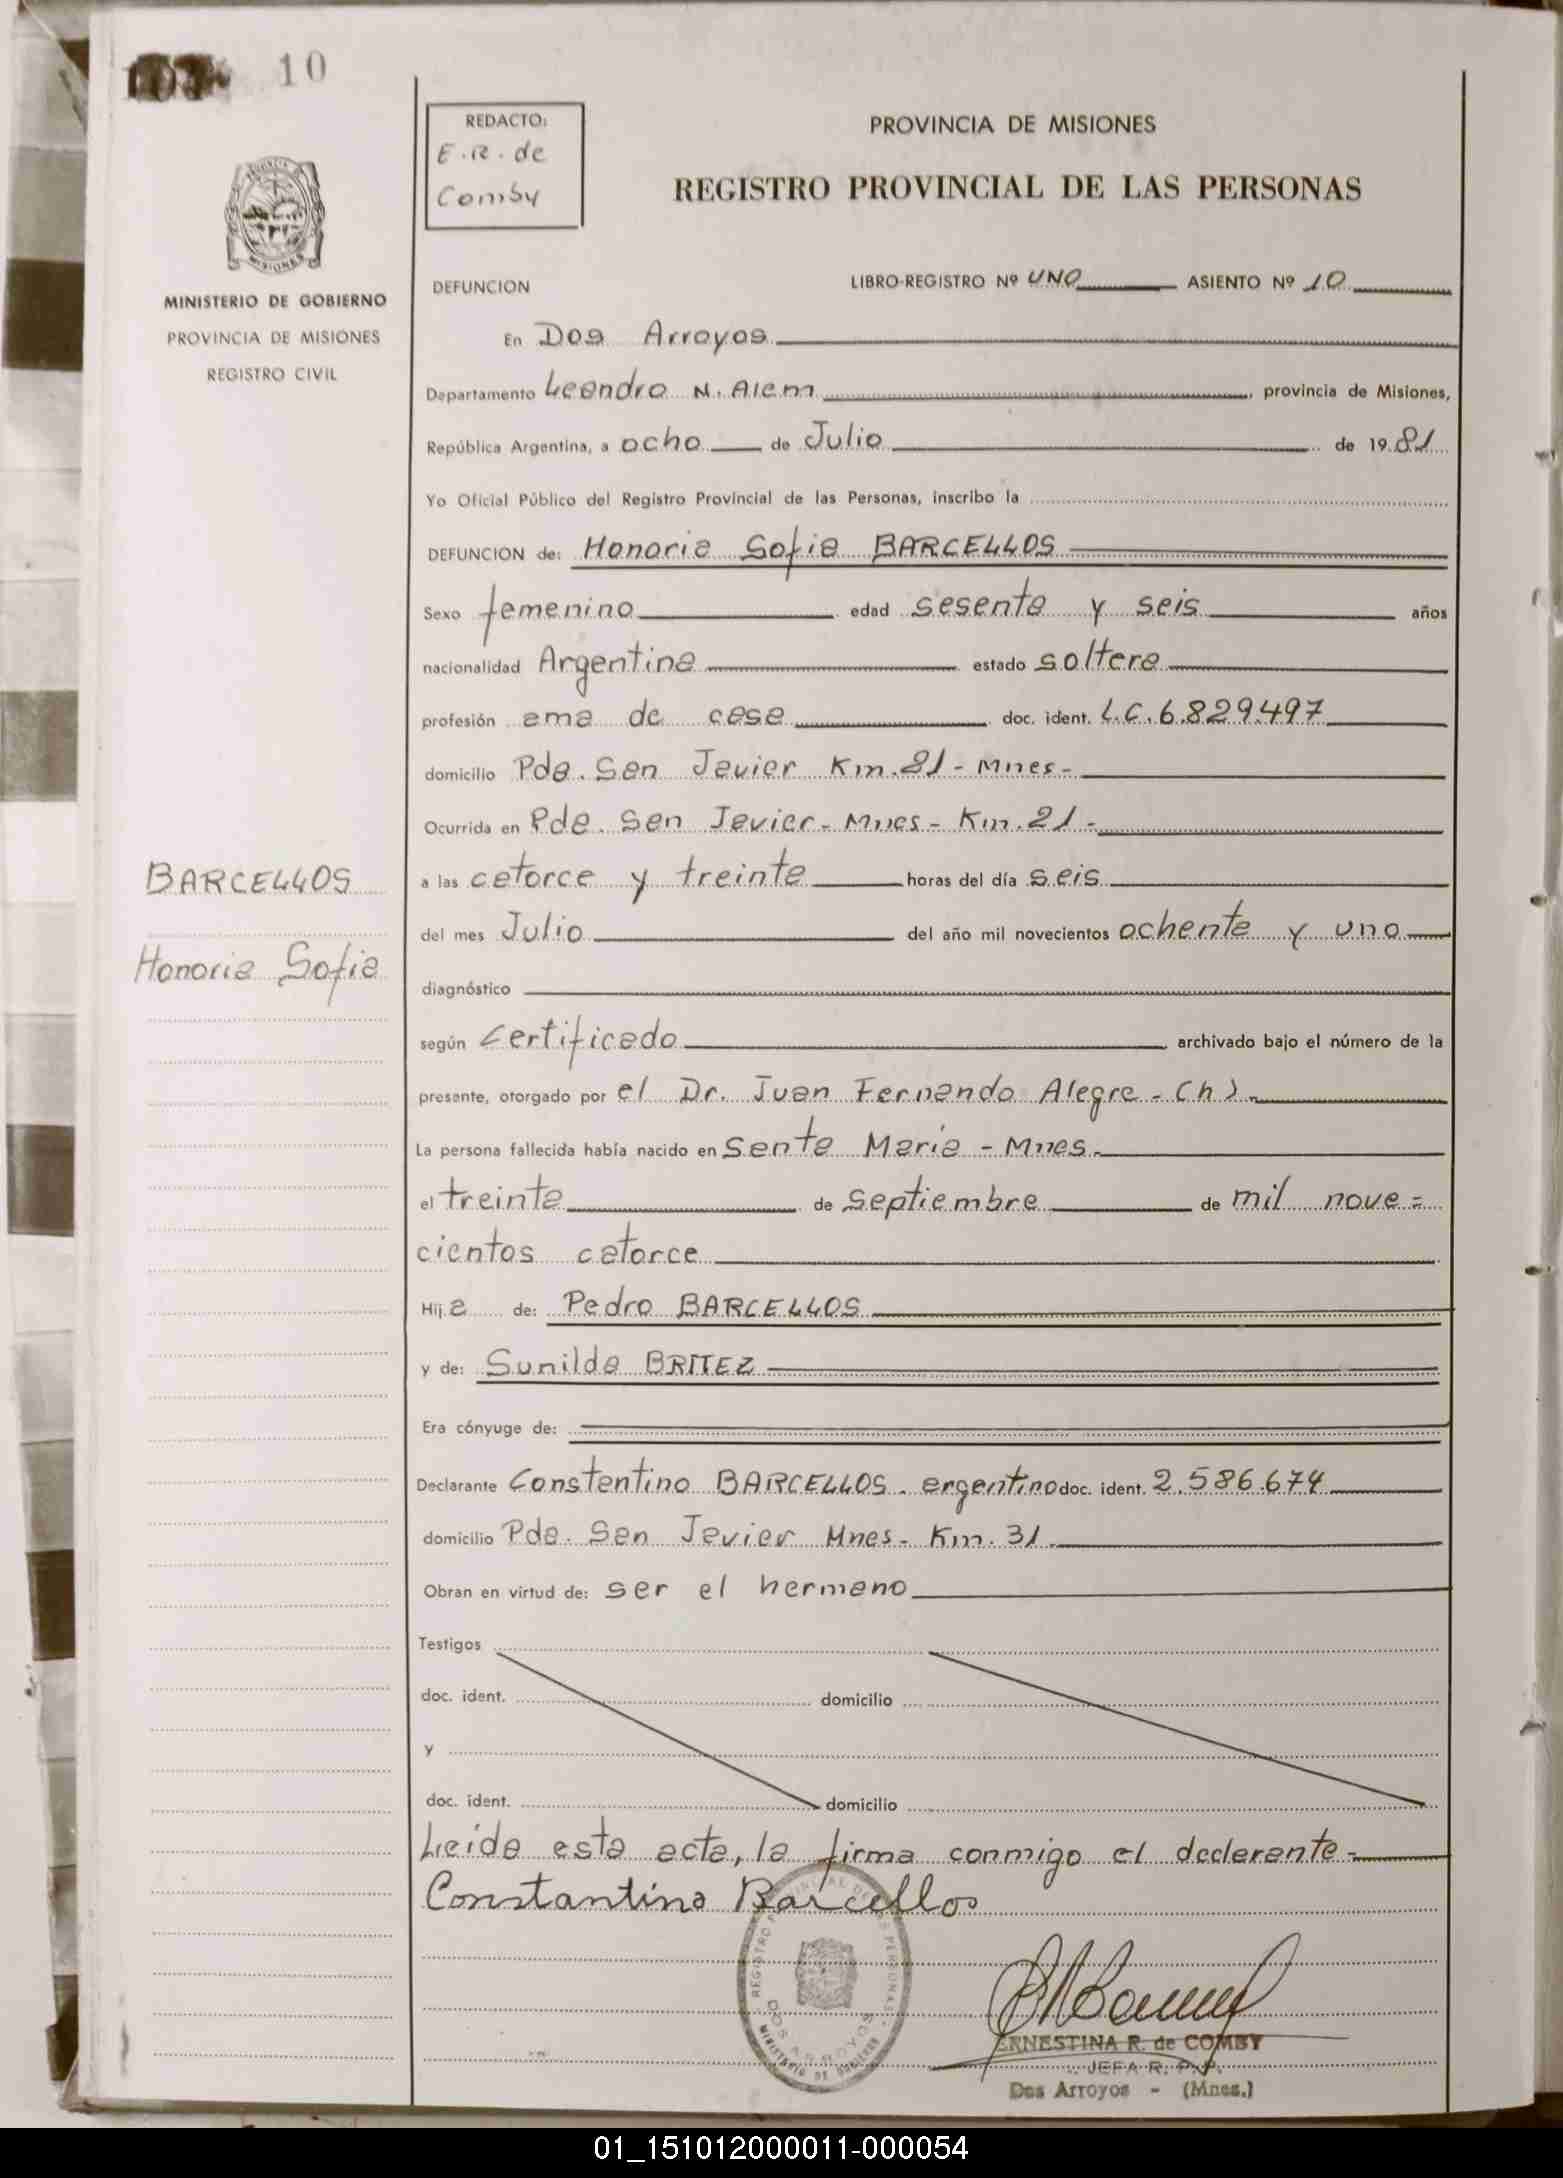 10
REDACTO:
E.R. de
Comby
PROVINCIA DE MISIONES
REGISTRO PROVINCIAL DE LAS PERSONAS
MINISTERIO DE GOBIERNO
PROVINCIA DE MISIONES
REGISTRO CIVIL
DEFUNCION LIBRO-REGISTRO Nº UNO ASIENTO Nº 10
En Dos Arroyos
Departamento Leandro N. Alem, provincia de Misiones,
República Argentina, a ocho de Julio de 1981
Yo Oficial Público del Registro Provincial de las Personas, inscribo la
DEFUNCION de: Honoria Sofia BARCELLOS
Sexo femenino edad sesenta y seis años
nacionalidad Argentina estado soltera
profesión ama de casa doc. ident. L.C. 6.829.497
domicilio Pda. San Javier Km. 21 - Mnes-
Ocurrida en Pda. San Javier- Mnes- Km. 21-
a las catorce y treinta horas del día seis
del mes Julio del año mil novecientos ochenta y uno
BARCELLOS
Honoria Sofia
diagnóstico
según certificado archivado bajo el número de la
presente, otorgado por el Dr. Juan Fernando Alegre - (h).
La persona fallecida había nacido en Santa María - Mnes.
el treinta de septiembre de mil nove=
cientos catorce
Hija de: Pedro BARCELLOS
y de: Sunilda BRITEZ
Era cónyuge de:
Declarante Constantino BARCELLOS. argentino doc. ident. 2.586.674
domicilio Pda. San Javier Mnes- Km. 31
Obran en virtud de: ser el hermano
Testigos
doc. ident. domicilio
y
doc. ident. domicilio
Leida esta acta, la firma conmigo el declarante-
Constantino Barcellos
REGISTRO PROVINCIAL DE LAS PERSONAS
DOS ARROYOS
MINISTERIO DE GOBIERNO
ERNESTINA R. de COMBY
JEFA R. P. P.
Dos Arroyos - (Mnes.)
01_151012000011-000054